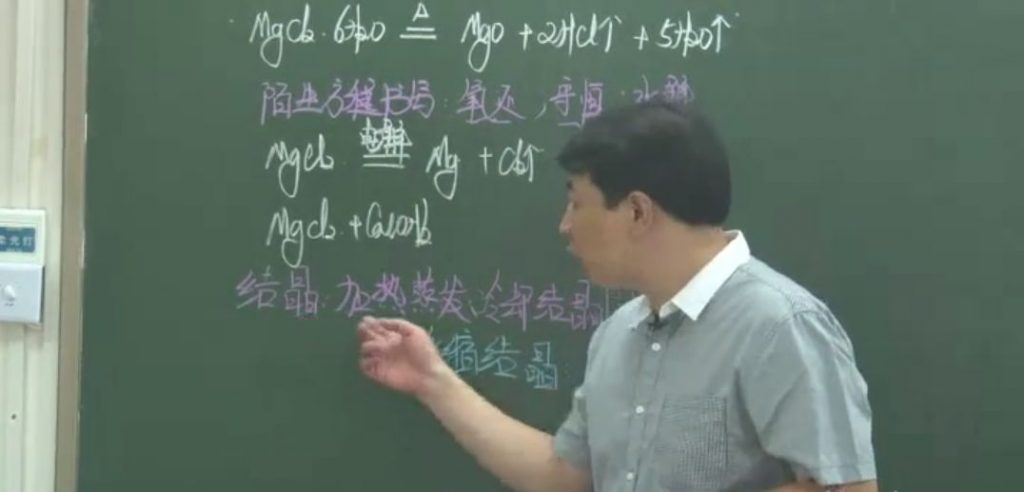 MgCl₂·6H₂O ≜ MgO + 2HCl↑ + 5H₂O↑
陌生方程书写：氧还，守恒，水解
MgCl₂ 电解 Mg + Cl₂↑
MgCl₂ + Ca(OH)₂
结晶：加热蒸发、冷却结晶
缩结晶
光灯